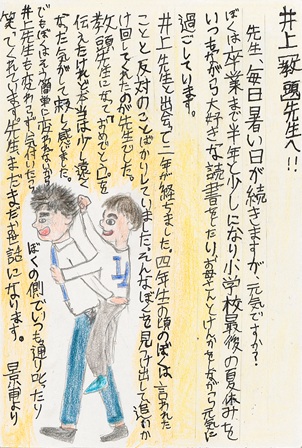 井上教頭先生へ!!
先生、毎日暑い日が続きますが、元気ですか?
ぼくは卒業まで半年と少しになり小学校最後の夏休みを
いつもながら大好きな読書をしたり、お母さんとけんかをしながら元気に
過ごしています。
井上先生と出会って二年が経ちました。四年生の頃のぼくは、言われた
ことと反対のことばかりしていました。そんなぼくを見つけ出して追いか
け回してくれたのが先生でした。
教頭先生になっておめでとうを
伝えたけれど本当は少し遠く
なった気がして寂しく感じました。
でもぼくはそう簡単に変われないから
井上先生も変わらず
ぼくの側でいつも通り叱ったり
笑ってくれています。先生まだまだお世話になります。